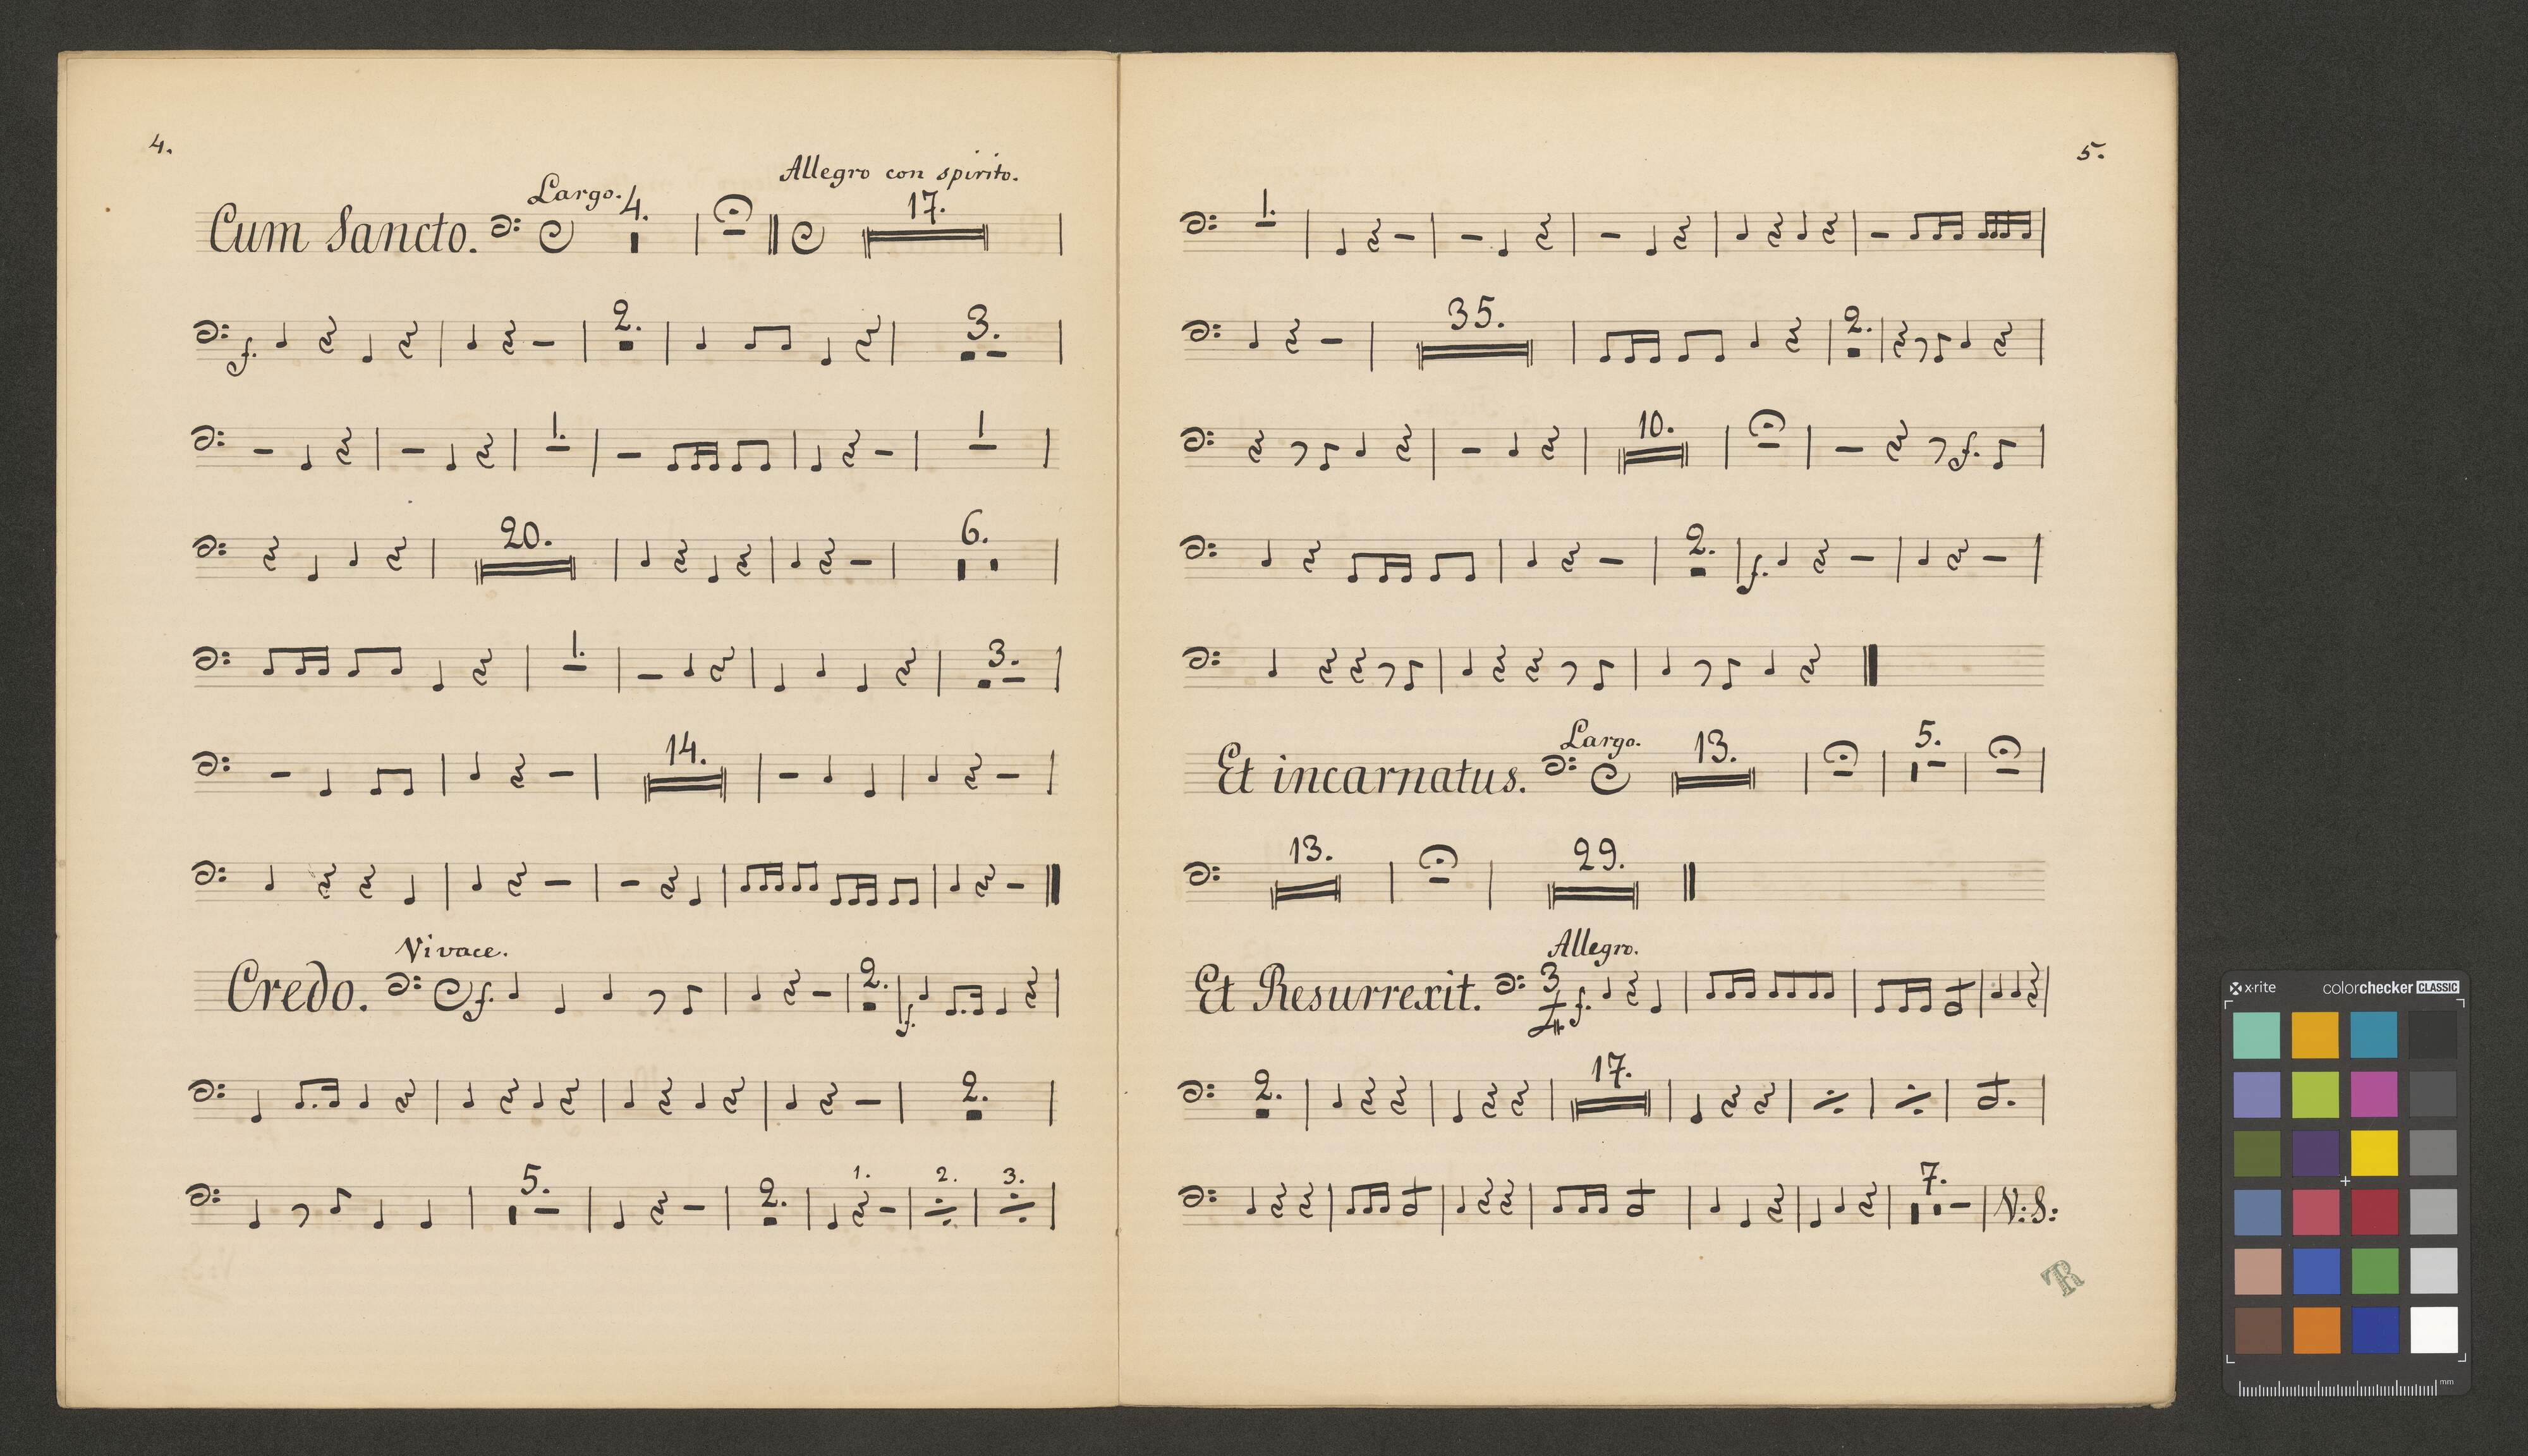 4.
Largo. Allegro con spirito.
Cum Sancto. 4. 17.
f. 2. 3.
1. 1
20. 6.
1. 3.
14.
Vivace.
Credo. f. 2. f.
2.
5. 2. 1. 2. 3.
5.
1.
35. 2.
10. f.
2. f.
Largo.
Et incarnatus. 13. 5.
13. 29.
Allegro.
Et Resurrexit. 3/4 f.
2. 17.
7. V.:S:
TR
x-rite colorchecker CLASSIC
mm